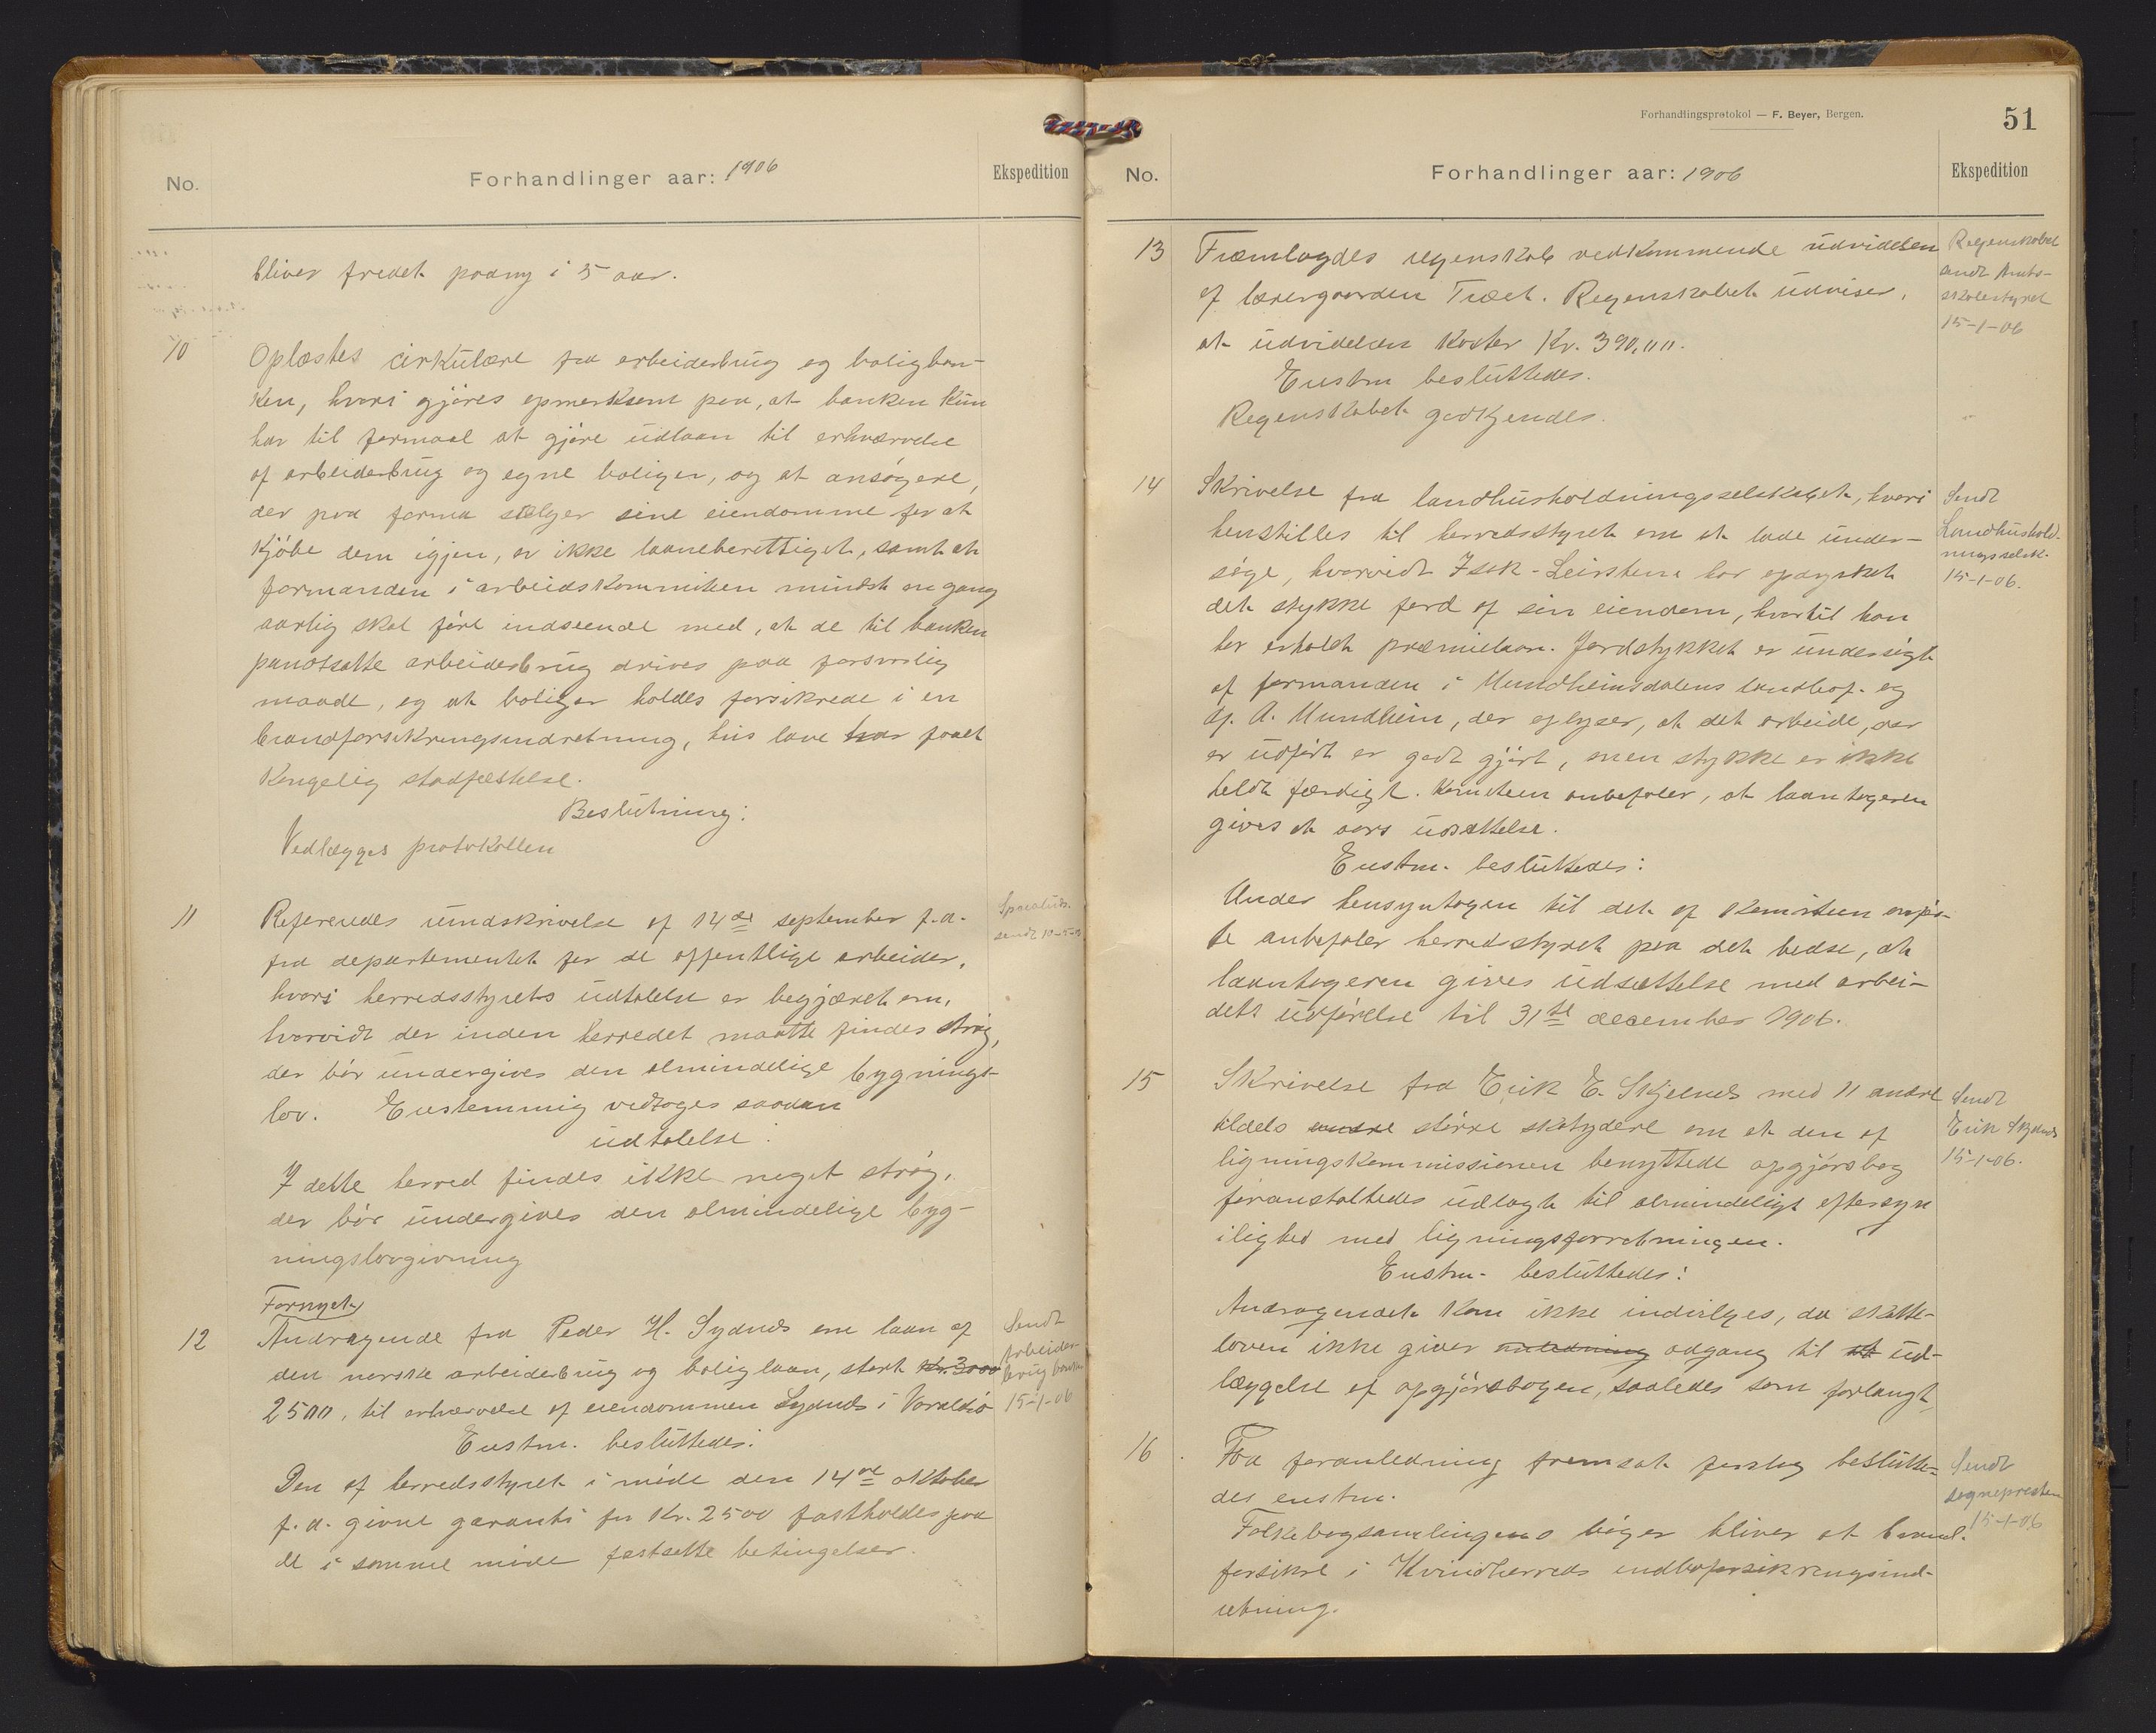 No.
Forhandlinger aar: 1906
Ekspedition
bliver fredet paany i 5 aar.
10
Oplæstes cirkülære fra arbeiderbrüg og boligban-
ken, hvori gjøres opmerksom paa, at banken kün
har til formaal at gjøre üdlaan til erhværvelse
af arbeiderbrüg og egne boliger, og at ansøgere,
der pro forma sælger sine eiendomme for at
kjøbe dem igjen, er ikke laaneberettiget, samt at
formanden i arbeidskommiteen mindst en gang
aarlig skal føre indseende med, at de til banken
pantsatte arbeiderbrüg drives paa forsvarlig
maade, og at boliger holdes forsikrede i en
brandforsikringsindretning, hvis love har faaet
Kongelig stadfæstelse.
Beslütning:
Vedlægges protokollen
11
Refereredes rundskrivelse af 14de september f.a.
fra departementet for de offentlige arbeider,
hvori herredsstyrets üdtalelse er begjæret om,
hvorvidt der inden herredet maatte findes strøg,
der bør ündergives den almindelige bygnings-
lov. Enstemmig vedtoges saadan
üdtalelse:
I dette herred findes ikke noget strøg,
der bør ündergives den almindelige byg-
ningslovgivning
sendt 10-5-06
Fornyet
12
Andragende fra Peder H. Sydnes om laan af
den norske arbeiderbrüg og boliglaan, stort Kr. 3000
2500, til erhvervelse af eiendommen Sydnes i Varaldsø
Enstm. beslüttedes:
Den af herredsstyret i møde den 14de oktober
f.a. givne garanti for Kr. 2500 fastholdes paa
de i samme møde fastsatte betingelser.
Sendt
arbeider-
brüg banken
15-1-06
Forhandlingsprotokol — F. Beyer, Bergen.
51
No.
Forhandlinger aar: 1906
Ekspedition
13
Fræmlagdes regenskab vedkommende üdvidelsen
af lærergaarden Træet. Regenskabet üdviser,
at üdvidelsen koster Kr. 390,00.
Enstm beslüttedes.
Regenskabet godkjendes.
Regenskabet
sendt Amts-
skolestyret
15-1-06
14
Skrivelse fra landhüsholdningsselskabet, hvori
henstilles til herredsstyret om at lade ünder-
søge, hvorvidt Isak Leirstein har opdyrket
det stykke jord af sin eiendom, hvortil han
har erholdt præmielaan. Jordstykket er ündersøgt
af formanden i Mundheimsdalens landbof. og
af A. Mundheim, der oplyser, at det arbeide, der
er üdført er godt gjørt, men stykke er ikke
heldt færdigt. Komiteen anbefaler, at laantageren
gives et aars üdsættelse.
Enstm. beslüttedes:
Under hensyntagen til det af Komiteen anfør-
te anbefaler herredsstyret paa det bedste, at
laantageren gives üdsættelse med arbei-
dets üdførelse til 31te december 1906.
Sendt
Landhüshold-
ningsselsk.
15-1-06.
15
Skrivelse fra Erik E. Skjelnes med 11 andre
tildels andre større skatydere om at den af
ligningskommissionen benyttede opgjørsbog
foranstaltedes üdlagt til almindeligt eftersyn
ilighed med ligningsforretningen.
Enstm. beslüttedes:
Andragendet kan ikke indvilges, da skatte-
loven ikke giver anledning adgang til at üd-
læggelse af opgjørsbogen, saaledes som forlangt,
Sendt
Erik Skjelnes
15-1-06.
16
Paa foranledning fremsat forslag beslütte-
des enstm.
Folkebogsamlingens bøger bliver at brand-
forsikre i Kvindherreds indboforsikringsind-
retning.
Sendt
sognepresten
15-1-06